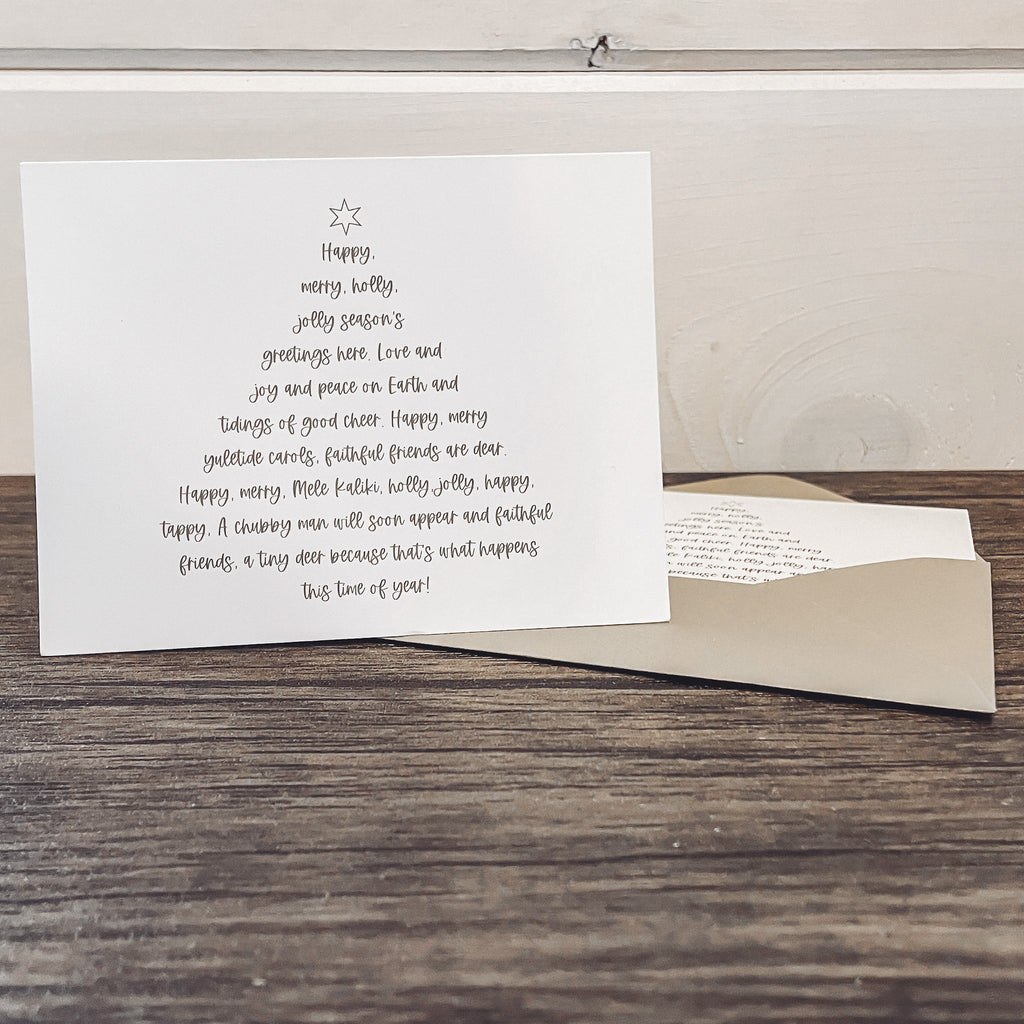 Happy,
merry, holly,
jolly season's
greetings here. Love and
joy and peace on Earth and
tidings of good cheer. Happy, merry
yuletide carols, faithful friends are dear.
Happy, merry, Mele Kaliki, holly, jolly, happy,
tappy, A chubby man will soon appear and faithful
friends, a tiny deer because that's what happens
this time of year!
Happy,
merry, holly,
jolly season's
greetings here. Love and
and peace on Earth and
good cheer. Happy, merry
faithful friends are dear.
Kaliki, holly, jolly,
will soon appear
because that's